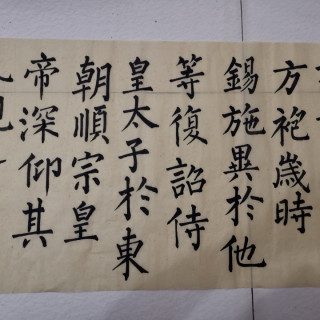 方袍歲時
錫施異於他
等復詔侍
皇太子於東
朝順宗皇
帝深仰其